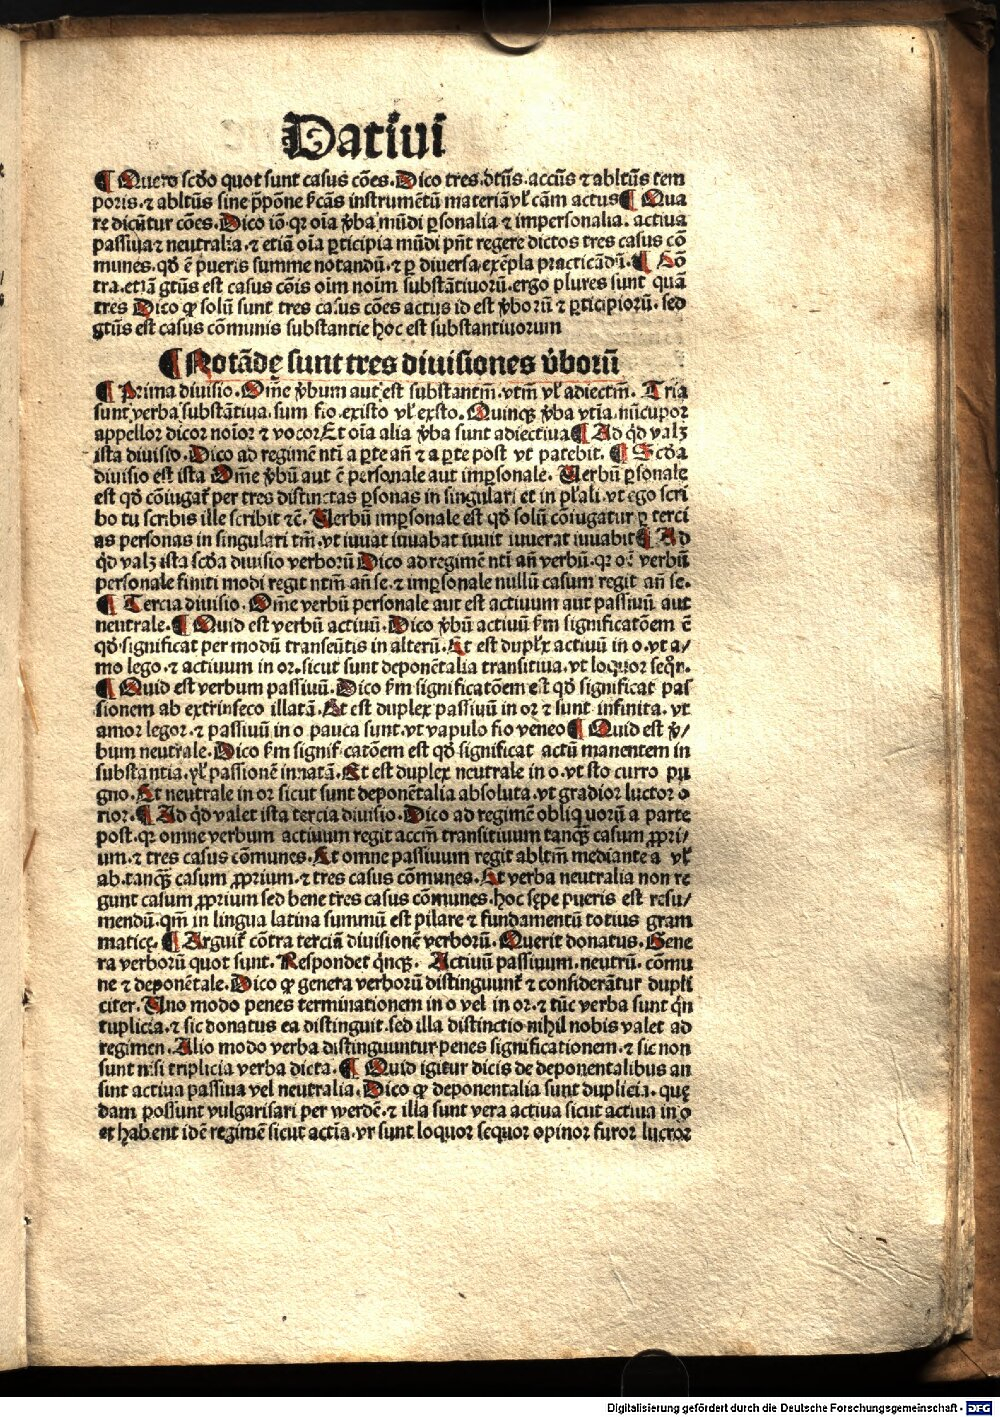 Datiui
¶ Quero scďo quot sunt casus cōes. Dico tres. dt̄us. accūs ⁊ abltūs tem
poris. ⁊ abltūs sine p̄pōne ſcās instrumētū materiā vl̓ cām actus ¶ Qua
re dicūtur cōes. Dico iō. qꝛ oīa v̓ba mūdi ꝑsonalia ⁊ impersonalia. actiua
passiua ⁊ neutralia. ⁊ etiā oīa ꝑticipia mūdi pn̄t regere dictos tres casus cō
munes. qď ē pueris summe notandū. ⁊ ꝑ diuersa exēpla practicādū. ¶ Cō
tra. etiā gtūs est casus cōis oīm noīm substātiuorū. ergo plures sunt quā
tres Dico ꝙ solū sunt tres casus cōes actus id est v̓borū ⁊ ꝑticipiorū. sed
gtūs est casus cōmunis substantie hoc est substantiuorum
¶ Notāde sunt tres diuisiones v̓borū
¶ Prima diuisio. Om̄e v̓bum aut est substantm̄. vtm̄ vl̓ adiectm̄. Tria
sunt verba substātiua. sum fio. existo vl̓ exsto. Quinqꝫ v̓ba vtīa. nūcupor
appellor dicor noīor ⁊ vocor Et oīa alia v̓ba sunt adiectiua ¶ Ad qd̓ valꝫ
ista diuisio. Dico ad regimē ntī a ꝑte an̄ ⁊ a ꝑte post vt patebit. ¶ Scďa
diuisio est ista Om̄e v̓bū aut ē personale aut imꝑsonale. Uerbū ꝑsonale
est qď cōiugat̓ per tres distinctas ꝑsonas in singulari et in pl̓ali. vt ego scri
bo tu scribis ille scribit ⁊c̄. Uerbū imꝑsonale est qď solū cōiugatur ꝑ terci
as personas in singulari tm̄. vt iuuat iuuabat iuuit iuuerat iuuabit ¶ Ad
qd̓ valꝫ ista scďa diuisio verborū Dico ad regimē ntī an̄ verbū. qꝛ oē verbū
personale finiti modi regit ntm̄ an̄ se. ⁊ imꝑsonale nullū casum regit an̄ se.
¶ Tercia diuisio. Om̄e verbū personale aut est actiuum aut passiuū aut
neutrale. ¶ Quid est verbū actiuū. Dico v̓bū actiuū ſm significatōem ē
qď significat per modū transeūtis in alterū. Et est duplex actiuū in o. vt a⸗
mo lego. ⁊ actiuum in or. sicut sunt deponētalia transitiua. vt loquor seqr̓.
¶ Quid est verbum passiuū. Dico ſm significatōem est qď significat pas
sionem ab extrinseco illatā. Et est duplex passiuū in or ⁊ sunt infinita. vt
amor legor. ⁊ passiuū in o pauca sunt. vt vapulo fio veneo ¶ Quid est v̓⸗
bum neutrale. Dico ſm significatōem est qď significat actū manentem in
substantia. vl̓ passionē innatā. Et est duplex neutrale in o. vt sto curro pu
gno. Et neutrale in or sicut sunt deponētalia absoluta. vt gradior luctor o
rior. ¶ Ad qd̓ valet ista tercia diuisio. Dico ad regimē obliquorū a parte
post. qꝛ omne verbum actiuum regit accm̄ transitiuum tanqꝫ casum ꝓpri⸗
um. ⁊ tres casus cōmunes. Et omne passiuum regit abltm̄ mediante a vl̓
ab. tanqꝫ casum ꝓprium. ⁊ tres casus cōmunes. Et verba neutralia non re
gunt casum ꝓprium sed bene tres casus cōmunes. hoc sepe pueris est resu⸗
mendū. qm̄ in lingua latina summū est pilare ⁊ fundamentū totius gram
matice. ¶ Arguit̓ cōtra terciā diuisionē verborū. Querit donatus. Gene
ra verborū quot sunt. Respondet qn̓qꝫ. Actiuū passiuum. neutrū. cōmu
ne ⁊ deponētale. Dico ꝙ genera verborū distinguunt̓ ⁊ considerātur dupli
citer. Uno modo penes terminationem in o vel in or. ⁊ tūc verba sunt qn̓
tuplicia. ⁊ sic donatus ea distinguit. sed illa distinctio nihil nobis valet ad
regimen. Alio modo verba distinguuntur penes significationem. ⁊ sic non
sunt nisi triplicia verba dicta. ¶ Quid igitur dicis de deponentalibus an
sint actiua passiua vel neutralia. Dico ꝙ deponentalia sunt duplicia. que
dam possunt vulgarisari per werdē. ⁊ illa sunt vera actiua sicut actiua in o
et habent idē regimē sicut actīa. vt sunt loquor sequor opinor furor luctor
Digitalisierung gefördert durch die Deutsche Forschungsgemeinschaft - DFG